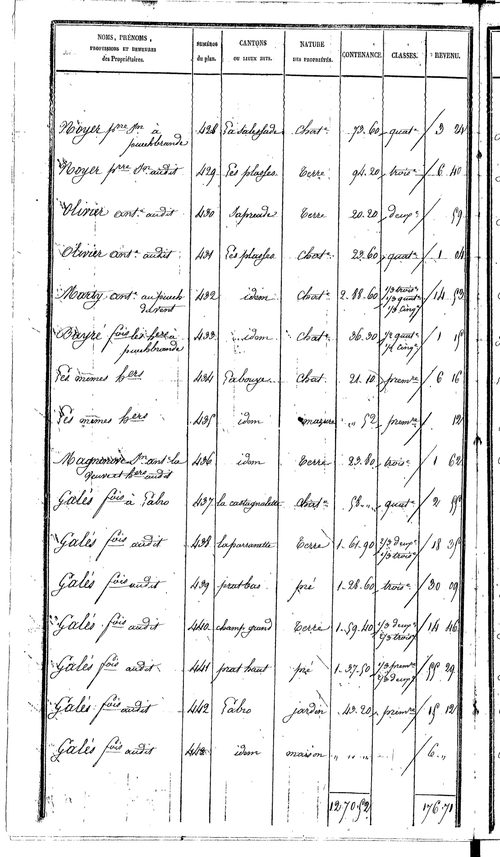 NOMS, PRÉNOMS, PROFESSIONS ET DEMEURES des Propriétaires. NUMÉROS du plan. CANTONS OU LIEUX DITS. NATURE DES PROPRIÉTÉS. CONTENANCE. CLASSES. REVENU.
Noyer pre Jn à puechbrande 428 La salesade Chat. 73.60 quat. 3 24
Noyer pierre Jn audit 429 Les plasses Terre 94.20 trois. 6 40
Olivier ant. audit 430 Terre 20.20 deux. 59
Olivier ant. audit 431 Les plasses Chat. 23.60 quat. 1 04
Marty ant. au puech 432 idem Chat. 2.88.60 1/3 trois. 1/3 quat. 1/3 cinq. 14 53
fois les hers à puechbrande 433 idem Chat. 36.30 1/2 quat. 1/2 cinq. 1 15
Les mêmes hers 434 Labouze Chat. 21.10 prem. 6 16
Les mêmes hers 435 idem mazure 52 prem. 12
Jn ant. la veuve et hers audit 436 idem Terre 23.80 trois. 1 62
Galés fois à Labro 437 la castagnalette Chat. 58 „ quat. 2 55
Galés fois audit 438 Terre 1.61.90 1/3 deux. 2/3 trois. 18 35
Galés fois audit 439 prat bas pré 1.28.60 trois. 30 09
Galés fois audit 440 champ grand Terre 1.59.40 1/3 deux. 2/3 trois. 14 46
Galés fois audit 441 prat haut pré 1.37.50 1/3 prem. 2/3 deux. 55 29
Galés fois audit 442 Labro jardin 43.20 prem. 15 12
Galés fois audit 443 idem maison „ „ „ 6 „
1270.52 176.71